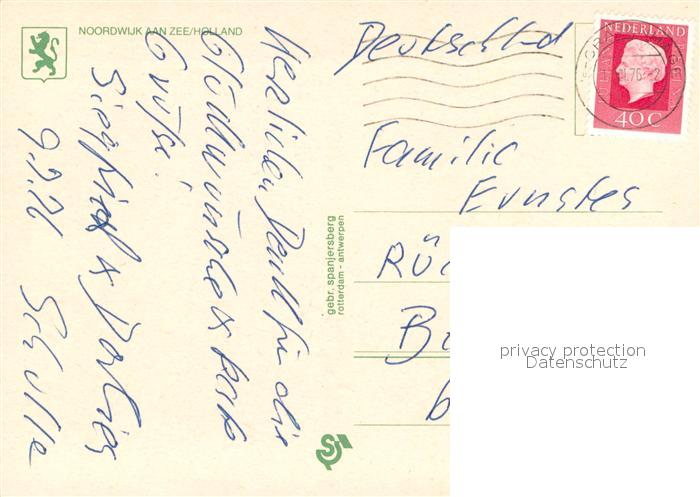 NOORDWIJK AAN ZEE/HOLLAND
Herzlichen Dank für die
Glückwünsche & beste
Grüße!
Siegfried & Dorlies
Schulte
gebr. spanjersberg
rotterdam - antwerpen
Deutschland
NEDERLAND
40 C
Familie
Ernstes
RÜ
B
b
privacy protection
Datenschutz